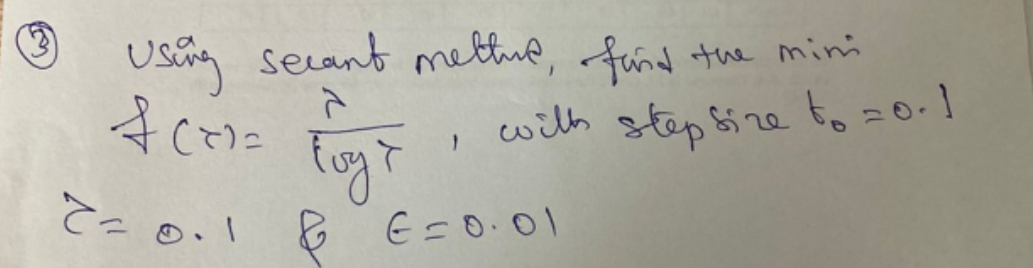 ③ Using secant method, find the mini
f(λ) = λ / log λ , with step size t₀ = 0.1
λ = 0.1 & ε = 0.01